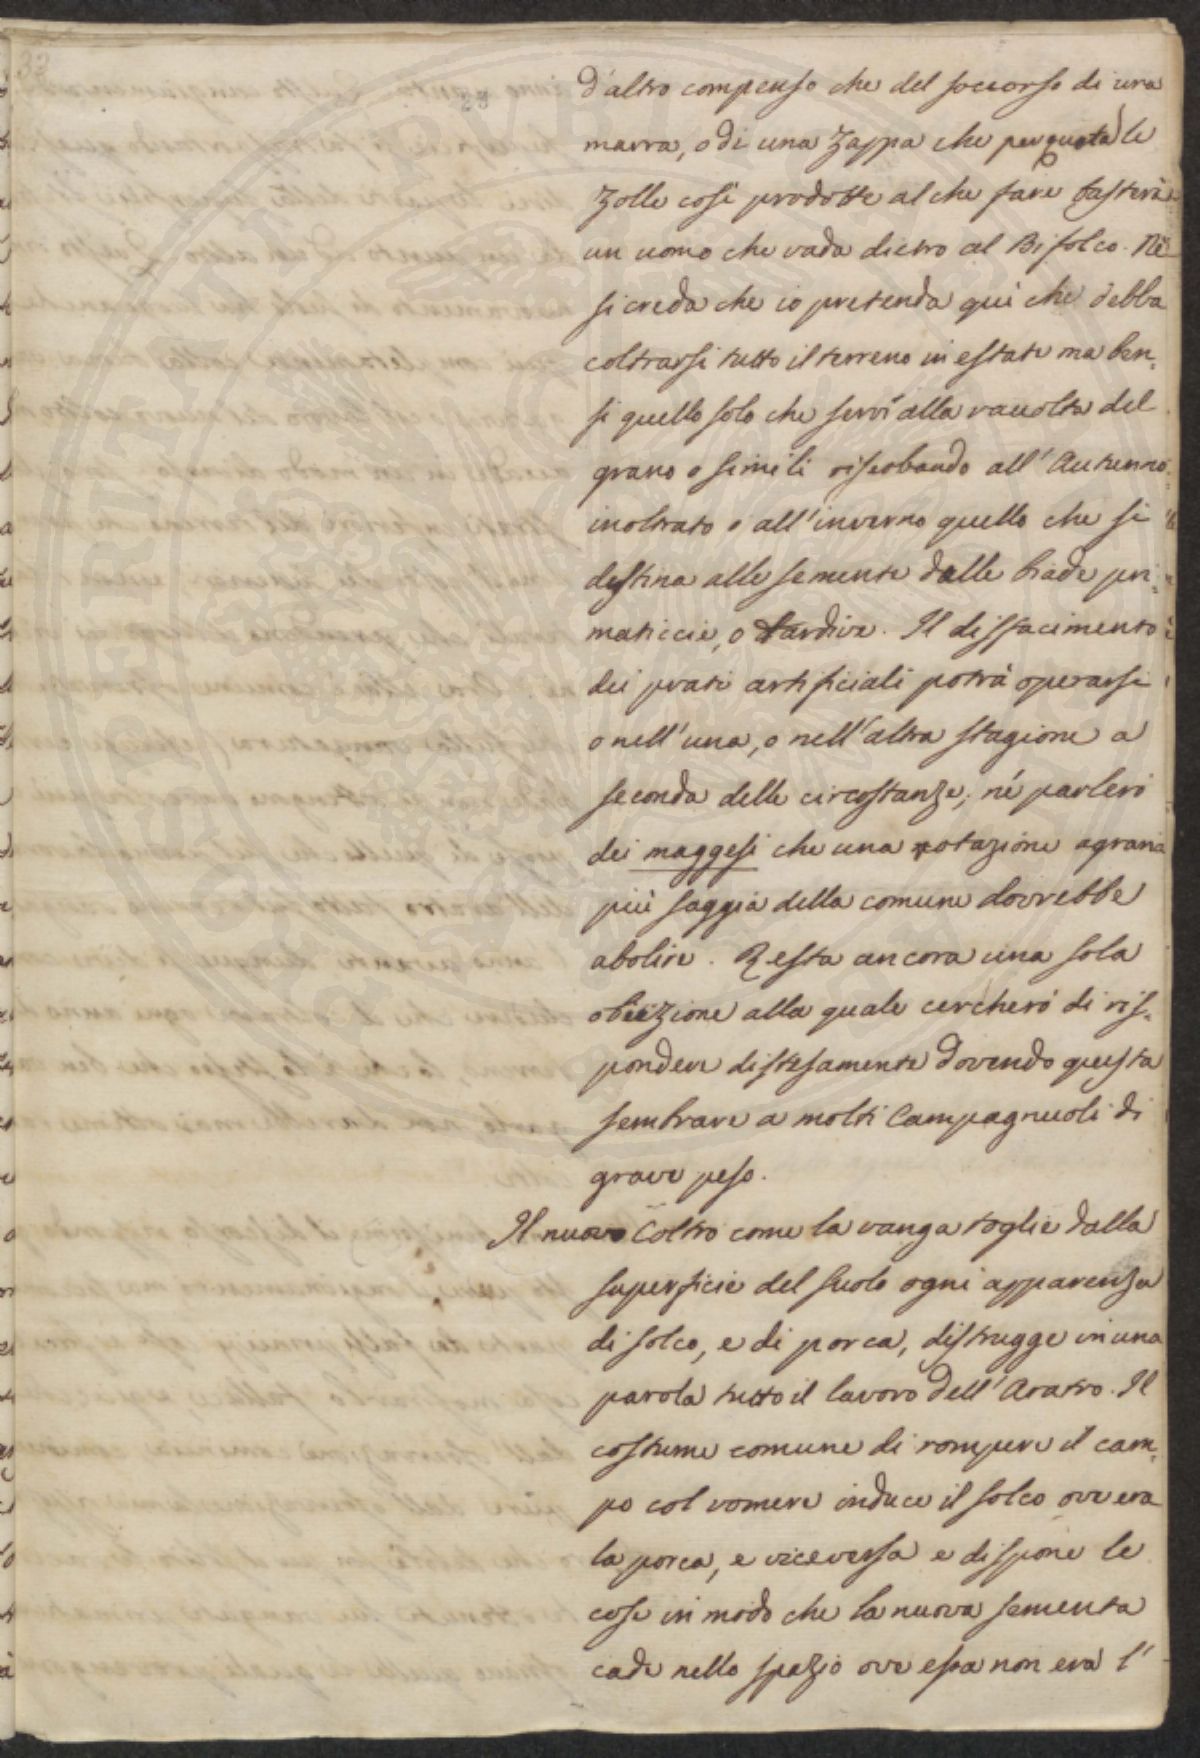 33
23
d'altro compenso che del soccorso di una
marra, o di una Zappa che perquota le
Zolle così prodotte al che fare basterà
un uomo che vada dietro al Bifolco. Nè
si creda che io pretenda quì che debba
coltrarsi tutto il terreno in estate ma ben-
si quello solo che servì alla raccolta del
grano o simili riserbando all'Autunno
inoltrato o all'inverno quello che si
destina alle semente delle biade pri-
maticcie, o tardive. Il disfacimento
dei prati artificiali potrà operarsi
o nell'una, o nell'altra stagione a
seconda delle circostanze; né parlerò
dei maggesi che una rotazione agraria
più saggia della comune dovrebbe
abolire. Resta ancora una sola
obiezione alla quale cercherò di ris-
pondere distesamente dovendo questa
sembrare a molti Campagnuoli di
grave peso.
Il nuovo Coltro come la vanga toglie dalla
superficie del suolo ogni apparenza
di solco, e di porca, distrugge in una
parola tutto il lavoro dell'Aratro. Il
costume comune di rompere il cam-
po col vomere induce il solco ove era
la porca, e viceversa e dispone le
cose in modo che la nuova sementa
cade nello spazio ove essa non era l'